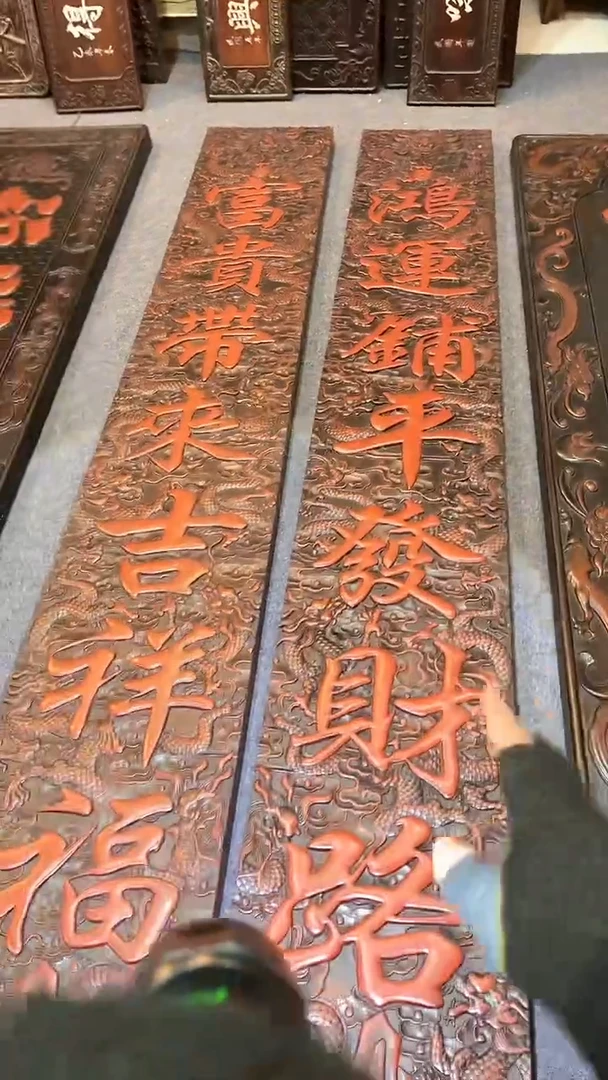 得
興
鴻運鋪平發財路
富貴帶來吉祥福